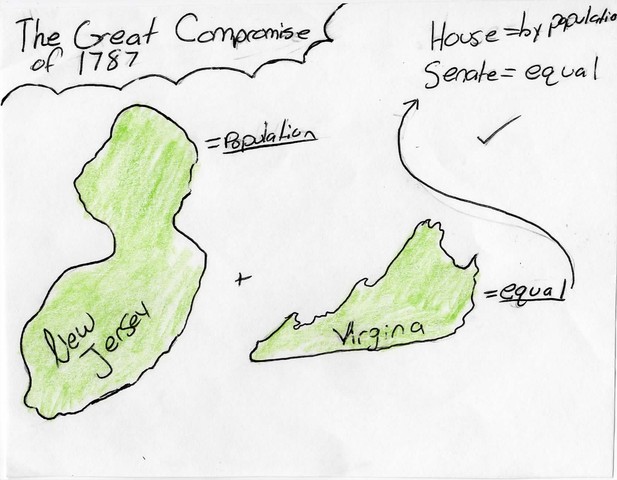 The Great Compromise
of 1787
House = by population
Senate = equal
= Population
+
= equal
New
Jersey
Virgina